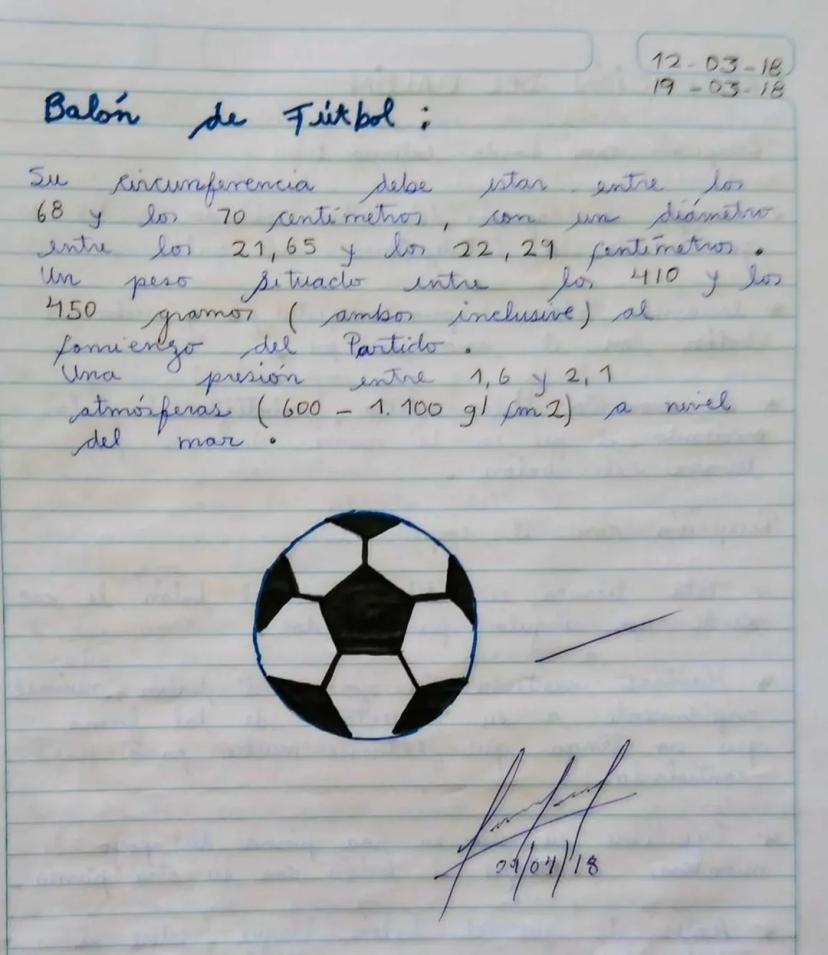 12-03-18
19-03-18
Balón de Fútbol:
Su circunferencia debe estar entre los
68 y los 70 centímetros, con un diámetro
entre los 21,65 y los 22,29 centímetros.
Un peso situado entre los 410 y los
450 gramos (ambos inclusive) al
comienzo del Partido.
Una presión entre 1,6 y 2,1
atmósferas (600 - 1.100 g/cm2) a nivel
del mar.
/04/18